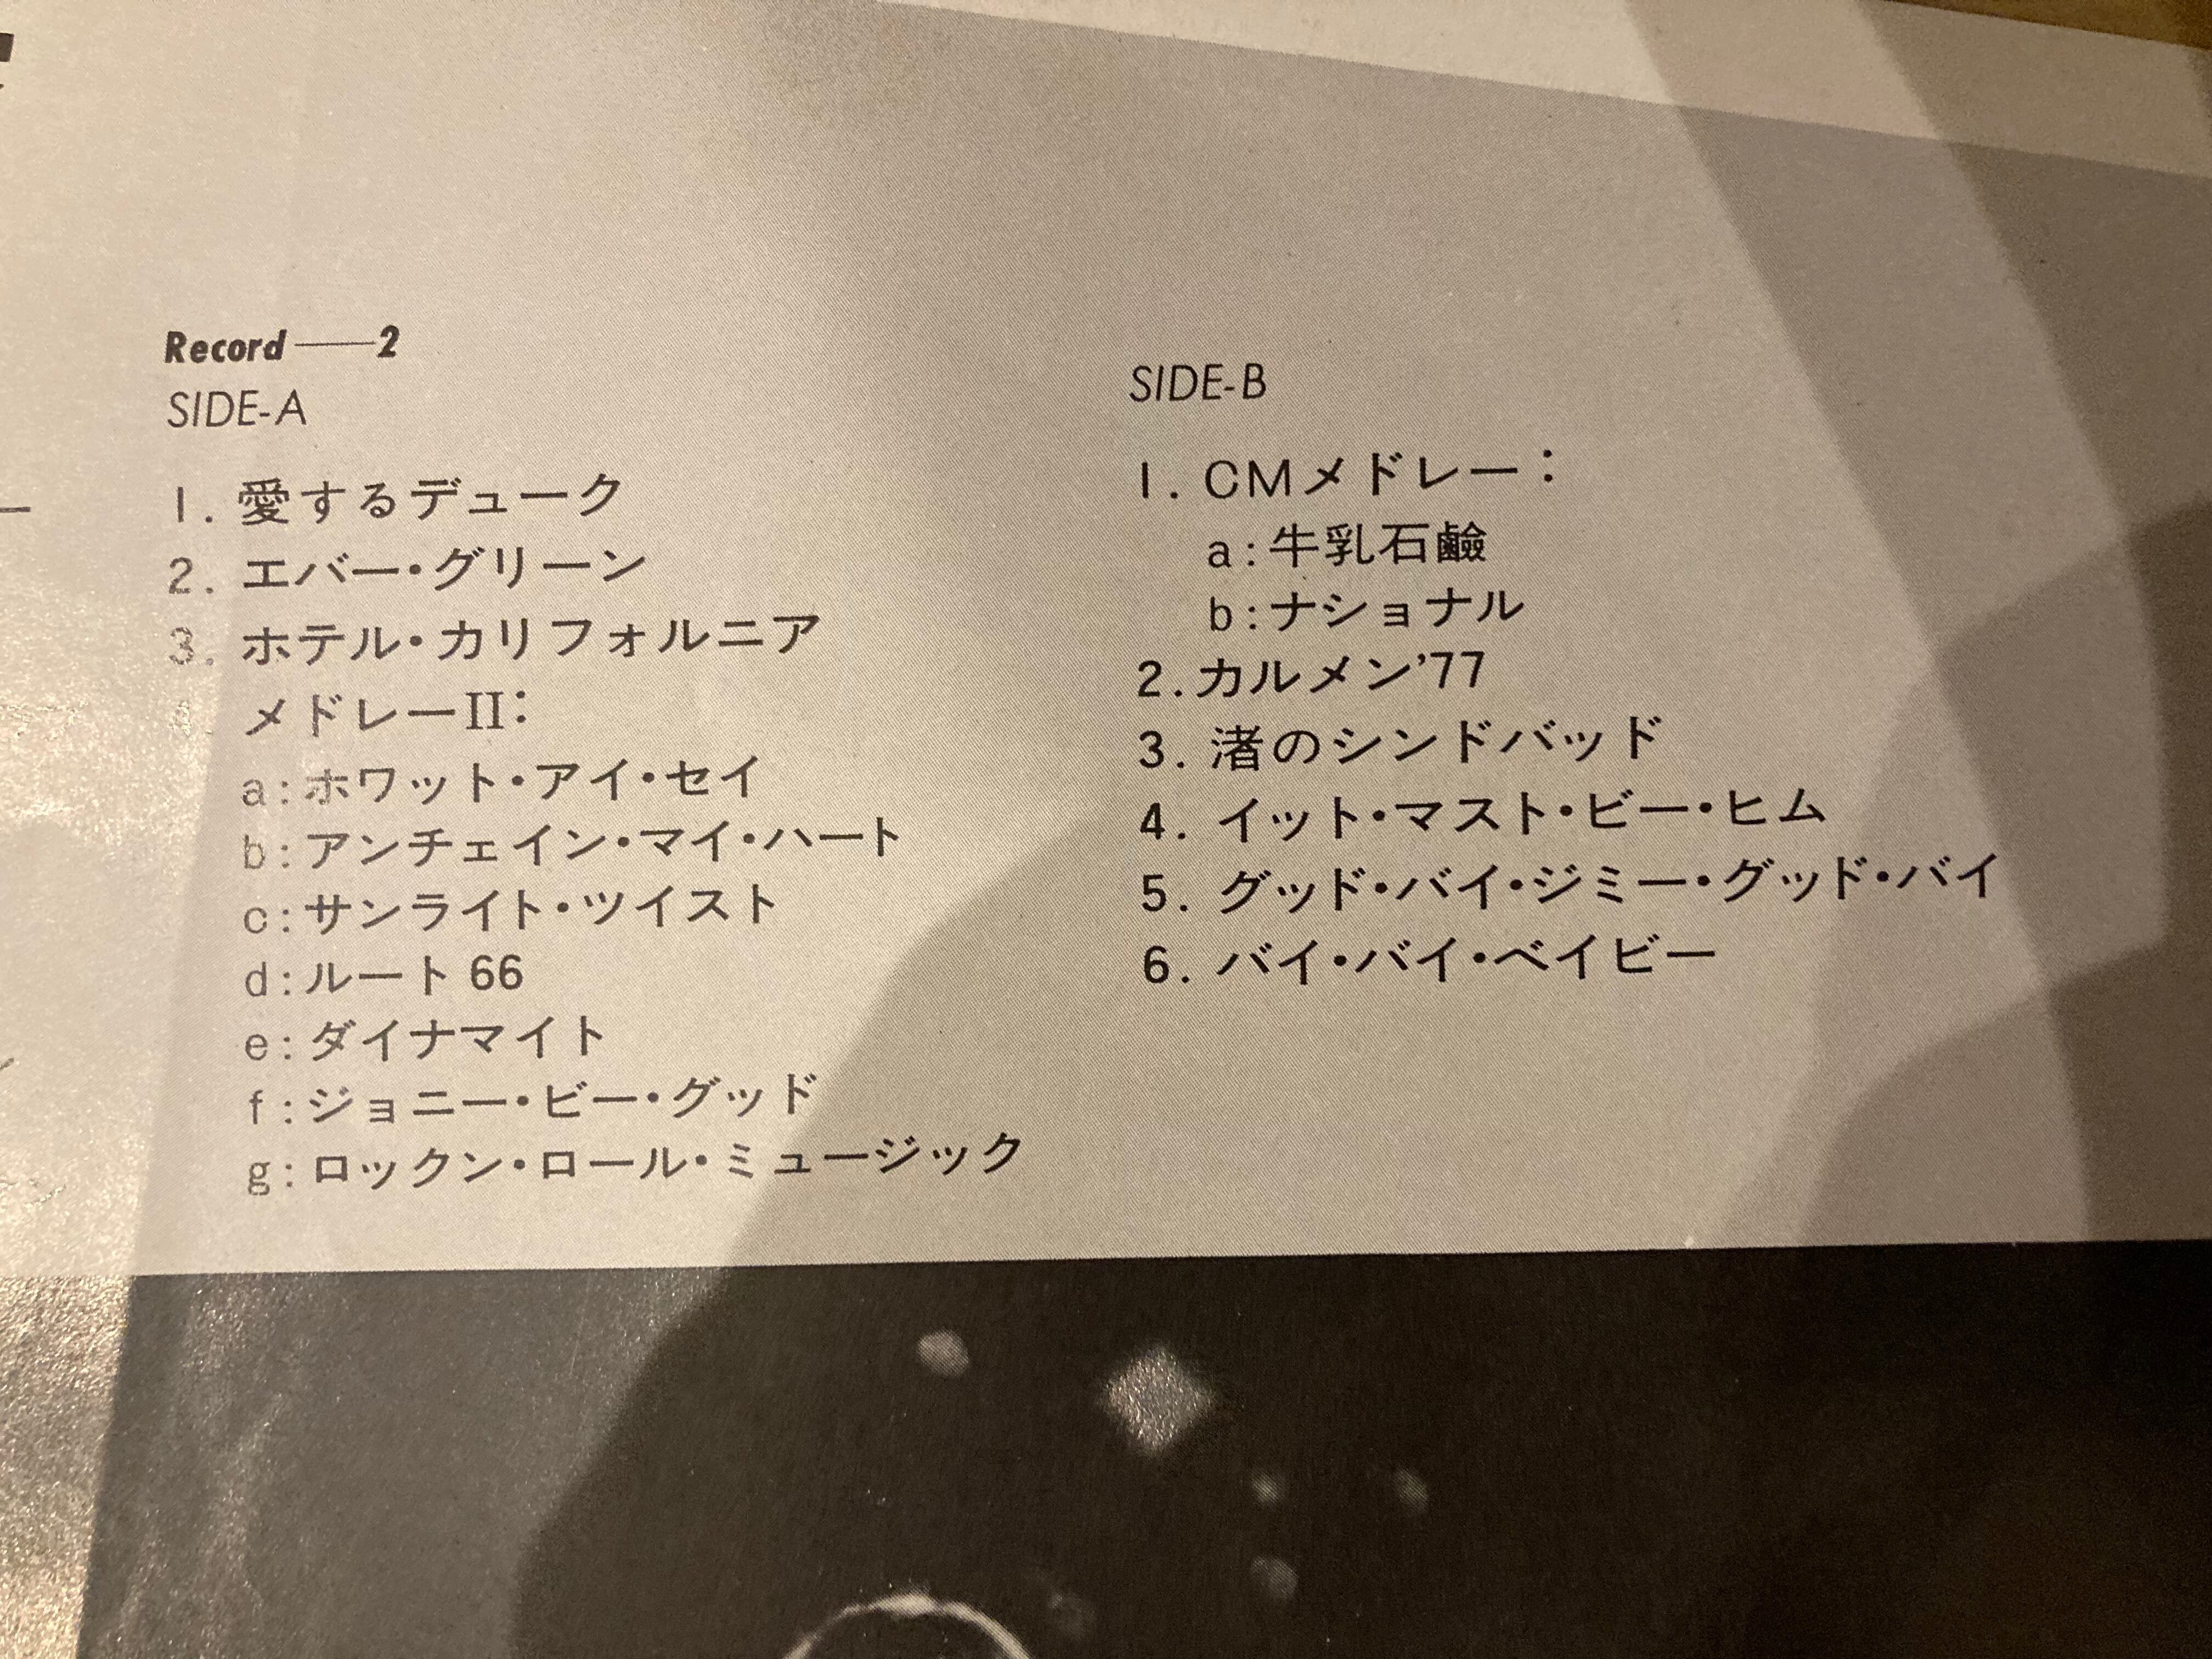 Record——2
SIDE-A
1. 愛するデューク
2. エバー・グリーン
3. ホテル・カリフォルニア
メドレーII:
a:ホワット・アイ・セイ
b:アンチェイン・マイ・ハート
c:サンライト・ツイスト
d:ルート66
e:ダイナマイト
f:ジョニー・ビー・グッド
g:ロックン・ロール・ミュージック
SIDE-B
1. CMメドレー:
a:牛乳石鹼
b:ナショナル
2.カルメン'77
3. 渚のシンドバッド
4. イット・マスト・ビー・ヒム
5. グッド・バイ・ジミー・グッド・バイ
6. バイ・バイ・ベイビー